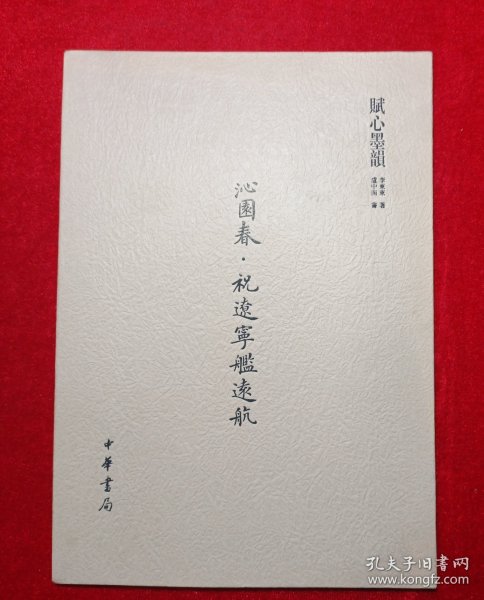 賦心墨韻
李東東 著
盧中南 書
沁園春·祝遼寧艦遠航
中華書局
孔夫子旧书网
www.kongfz.com